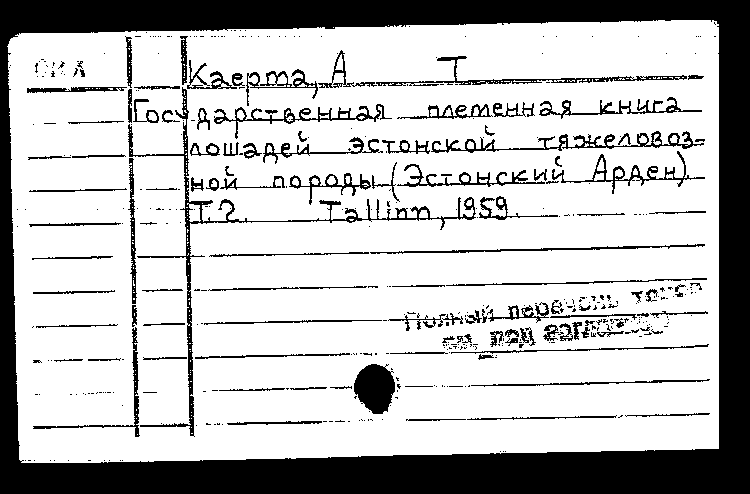 Каерта, А Т
Государственная племенная книга
лошадей эстонской тяжеловоз-
ной породы (Эстонский Арден)
Т.2. Tallinn, 1959.
Полный перечень томов
см. под заглавием